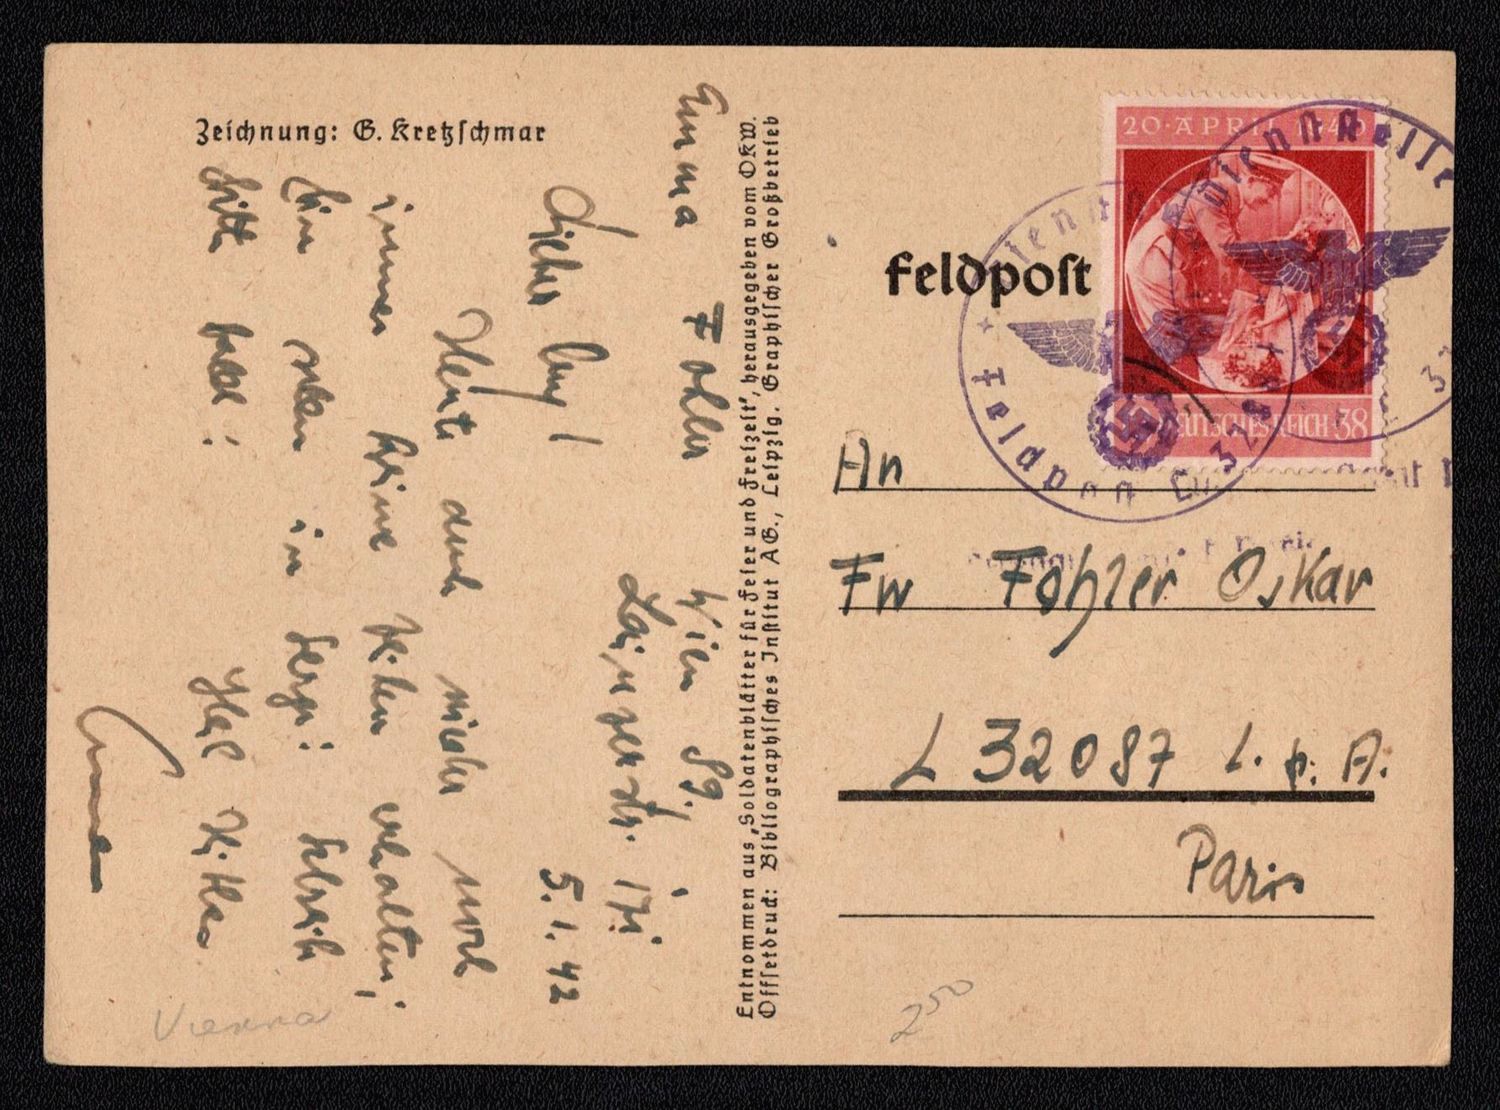 Zeichnung: G. Kretzschmar
Emma Fohler Wien 89,
Lainzerstr. 171
5.1.42
Lieber
Heute auch wieder noch
immer keine Zeilen erhalten;
Bin in Sorge! Schreib
bitte bald!
Heil Hitler
Emma
Vienna
Entnommen aus „Soldatenblätter für Feier und Freizeit", herausgegeben vom OKW.
Offsetdruck: Bibliographisches Institut AG., Leipzig. Graphischer Großbetrieb
20·APRIL 1940
DEUTSCHES REICH 38
Dienststelle
Feldpost
Feldpost
An
Fw Fohler Oskar
L 32087 L. p. A.
Paris
2 50